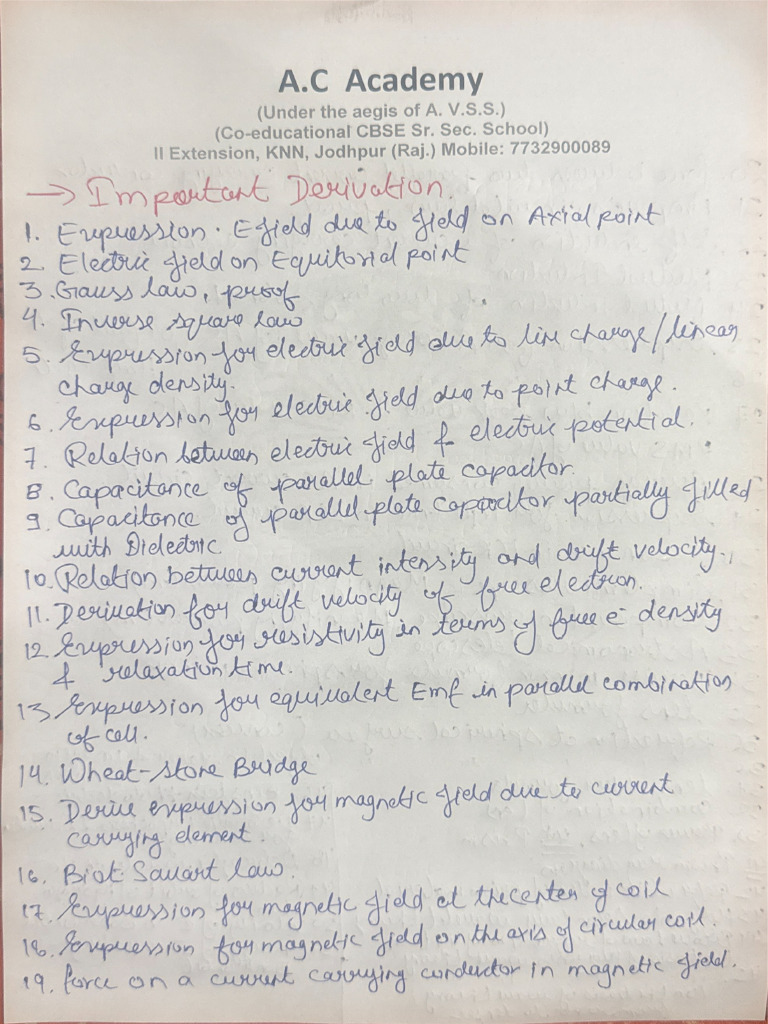 A.C Academy
(Under the aegis of A. V.S.S.)
(Co-educational CBSE Sr. Sec. School)
II Extension, KNN, Jodhpur (Raj.) Mobile: 7732900089
→ Important Derivation.
1. Expression. E field due to field on Axial point
2. Electric field on Equitorial point
3. Gauss law, proof
4. Inverse square law
5. Expression for electric field due to line charge/linear
charge density.
6. Expression for electric field due to point charge.
7. Relation between electric field & electric potential.
8. Capacitance of parallel plate capacitor.
9. Capacitance of parallel plate capacitor partially filled
with Dielectric.
10. Relation between current intensity and drift velocity.
11. Derivation for drift velocity of free electron.
12. Expression for resistivity in terms of free e⁻ density
& relaxation time.
13. Expression for equivalent Emf in parallel combination
of cell.
14. Wheat-stone Bridge
15. Derive expression for magnetic field due to current
carrying element.
16. Biot Savart law.
17. Expression for magnetic field at the center of coil
18. Expression for magnetic field on the axis of circular coil.
19. force on a current carrying conductor in magnetic field.